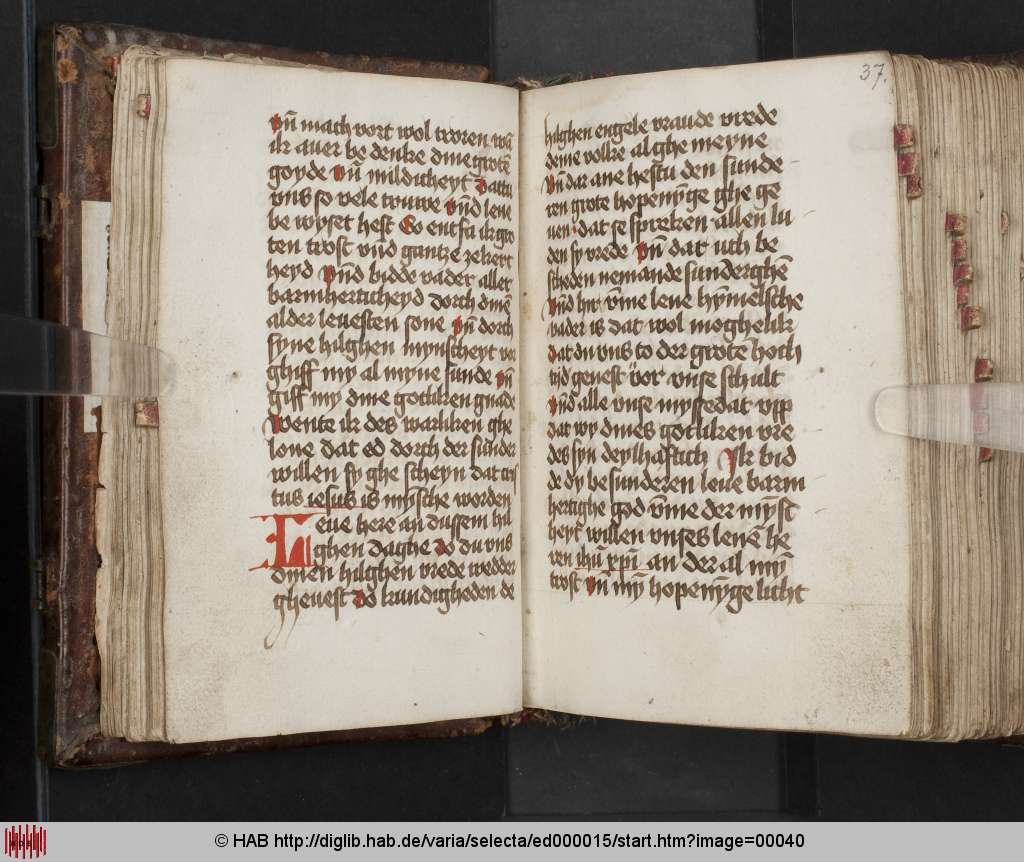 vn̄ mach vort wol troren wā
ik auer be denke dine grotē
goyde vn̄ mildicheyt dattu
vns so vele truwe vn̄d leue
be wyset hest So entfa ik gro
ten trost vn̄d gantze zekert
heyd vn̄d bidde vader aller
barmherticheyd dorch dinē
alder leuesten sone vn̄ dorch
syne hilghen mynscheyt vor
ghiff my al myne sunde vn̄
giff my dine gotliken gnade
wente ik des warliken ghe
loue dat ed dorch der sunder
willen sy ghe scheyn dat cris
tus iesus is mȳsche worden
Leue here an dussem hil
ghen daghe do du vns
dinen hilghen vrede wedder
gheuest do kundigheden de
37.
hilghen engele vraude vrede
deme volke al ghe meyne
vn̄ dar ane hestu den sunde
ren grote hopenȳge ghe ge
uen dat se spreken allen lu
den sy vrede vn̄ dat uch be
scheden nemande sunderghē
vn̄d hir v̄me leue hȳmelsche
vader is dat wol moghelik
dat du vns to der grotē hoch
tijd geuest vor vnse schult
vn̄d alle vnse myssedat vpp
dat wy dines gotliken vre
des syn deylhaftich Ik bid
de dy be sunderen leue barm
hertighe god v̄me der mȳsch
heyt willen vnses leuē he
ren ihū xpī an der al mȳ
trost vn̄ mȳ hopenȳge licht
© HAB http://diglib.hab.de/varia/selecta/ed000015/start.htm?image=00040